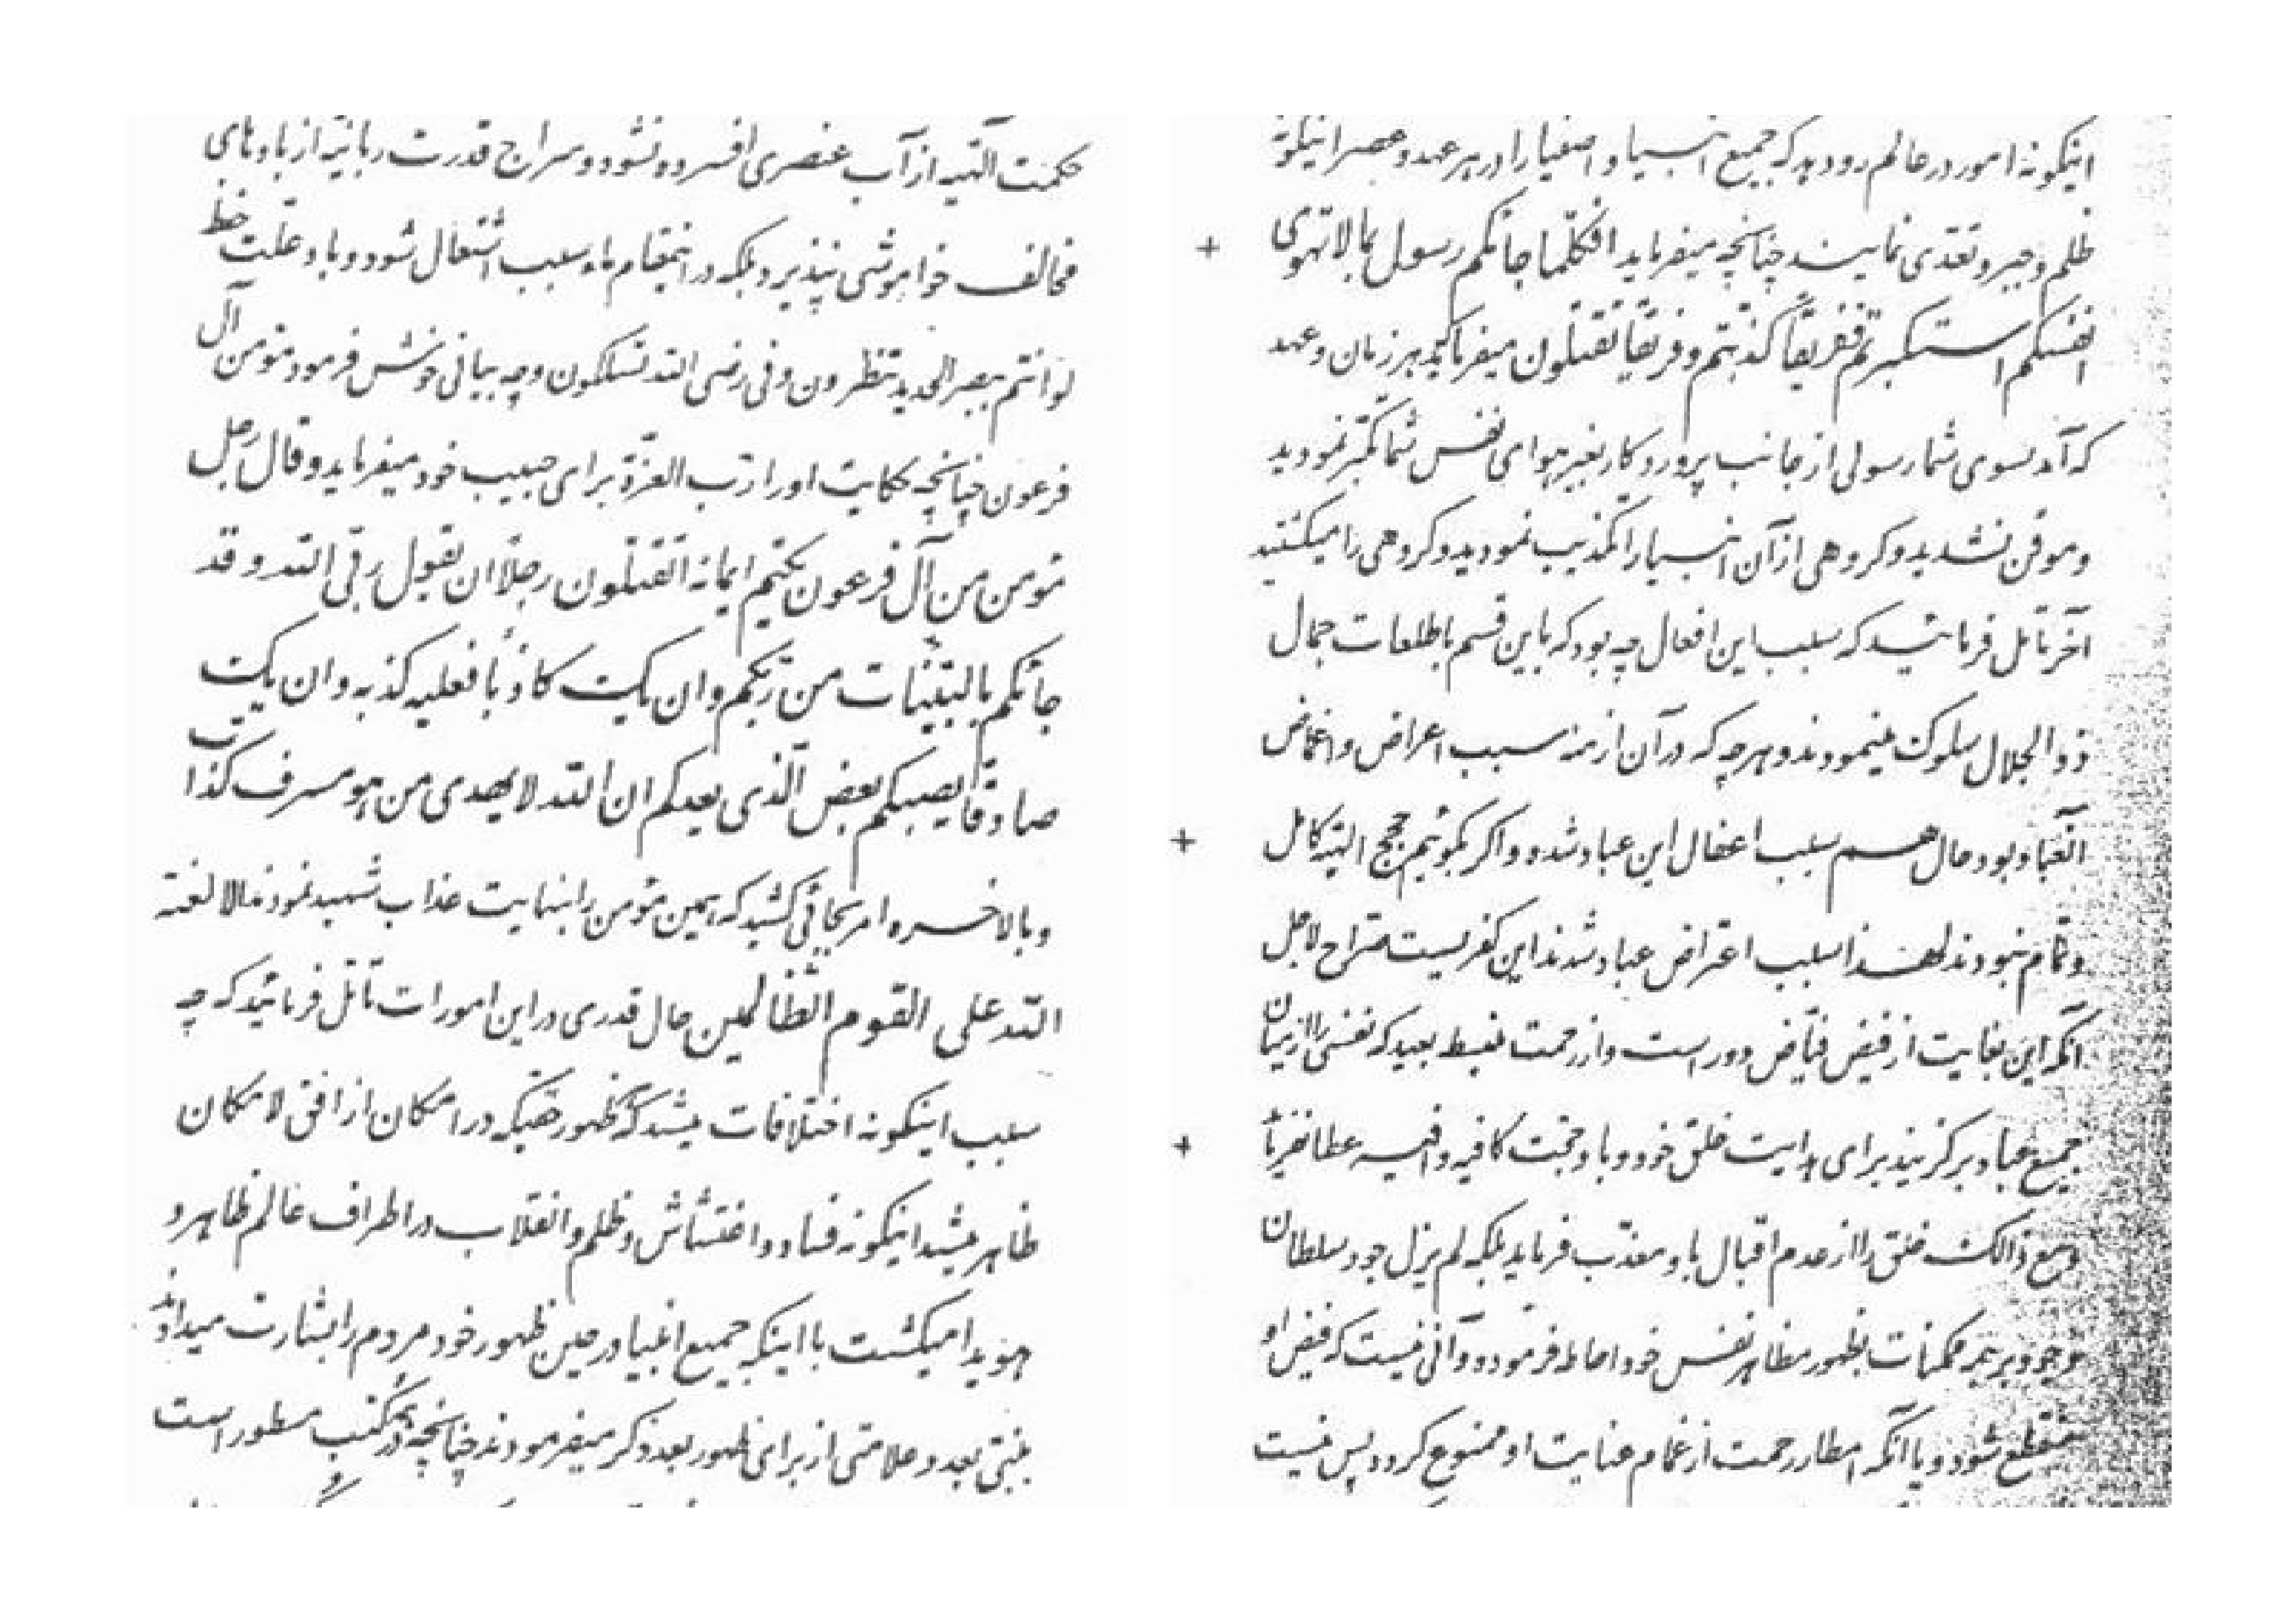 اینگونه امور در عالم رو دهد که جمیع انبیا و اصفیا را در هر عهد و عصر اینگونه
ظلم و جبر و تعدّی نمایند چنانچه میفرماید افکلّما جائکم رسول بما لا تهوی
انفسکم استکبرتم ففریقاً کذّبتم و فریقاً تقتلون میفرماید هر زمان و عهد
که آمد بسوی شما رسولی از جانب پروردکار بغیر هوای نفس شما تکبّر نمودید
و موقن نشدید و کروهی از آن انبیا را تکذیب نمودید و کروهی را میکشتید
آخر تأمّل فرمائید که سبب این افعال چه بود که باین قسم با طلعات جمال
ذو الجلال سلوک مینمودند و هر چه که در آن ازمنه سبب اعراض و اغماض
آن عباد بود حال هم سبب اغفال این عباد شده و اکر بکوئیم حجج الهیّه کامل
و تمام نبوده لهذا سبب اعتراض عباد شدند این کفریست صراح لاجل
آنکه این بغایت از فیض فیّاض دور است و از رحمت منبسط بعید که نفسی را از میان
جمیع عباد برکزیند برای هدایت خلق خود و باو حجّت کافیه وافیه عطا نفرماید
و مع ذالک خلق را از عدم اقبال باو معذّب فرماید بلکه لم یزل جود سلطان
وجود بر همه ممکنات بظهور مظاهر نفس خود احاطه فرموده و آنی نیست که فیض او
منقطع شود و یا آنکه امطار رحمت از غمام عنایت او ممنوع کردد پس نیست
حکمت الهیّه از آب عنصری افسرده نشود و سراج قدرت ربانیّه از بادهای
مخالف خواموشی نپذیرد بلکه در اینمقام ماء سبب اشتعال شود و باد علّت حفظ
لو انتم ببصر الحدید تنظرون و فی رضی الله تسلکون و چه بیانی خوش فرمود مؤمن آل
فرعون چنانچه حکایت او را ربّ العزّة برای حبیب خود میفرماید و قال رجل
مؤمن من آل فرعون یکتم ایمانه اتقتلون رجلاً ان یقول ربّی الله و قد
جائکم بالبیّنات من ربّکم و ان یک کاذباً فعلیه کذبه و ان یک
صادقاً یصبکم بعض الّذی یعدکم ان الله لا یهدی من هو مسرف کذّاب
و بالاخره امر بجائی کشید که همین مؤمن را بنهایت عذاب شهید نمودند الا لعنة
الله علی القوم الظّالمین حال قدری در این امورات تأمّل فرمائید که چه
سبب اینکونه اختلافات میشد که هر ظهور حقّیکه در امکان از افق لا مکان
ظاهر میشد اینکونه فساد و اغتشاش و ظلم و انقلاب در اطراف عالم ظاهر و
هویدا میکشت با اینکه جمیع انبیا در حین ظهور خود مردم را بشارت میدادند
بنبیّ بعد و علامتی از برای ظهور بعد ذکر میفرمودند چنانچه در همه کتب مسطور است